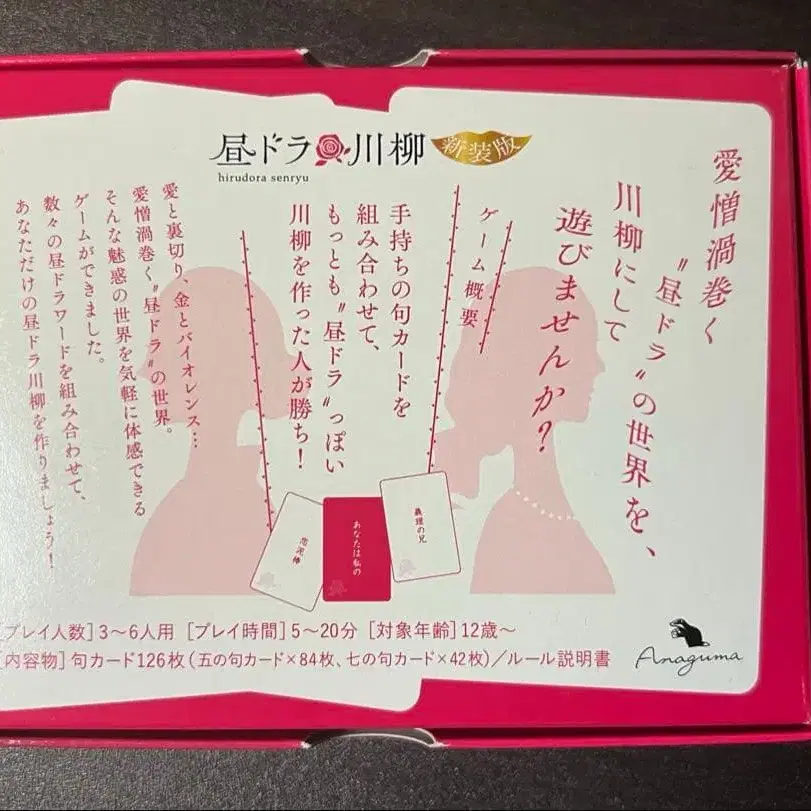 昼ドラ川柳 新装版
hirudora senryu
愛憎渦巻く
〝昼ドラ〟の世界を、
川柳にして
遊びませんか?
ゲーム概要
手持ちの句カードを
組み合わせて、
もっとも〝昼ドラ〟っぽい
川柳を作った人が勝ち!
愛と裏切り、金とバイオレンス…
愛憎渦巻く〝昼ドラ〟の世界。
そんな魅惑の世界を気軽に体感できる
ゲームができました。
数々の昼ドラワードを組み合わせて、
あなただけの昼ドラ川柳を作りましょう!
義理の兄
あなたは私の
恋泥棒
プレイ人数]3〜6人用 [プレイ時間]5〜20分 [対象年齢]12歳〜
内容物]句カード126枚(五の句カード×84枚、七の句カード×42枚)/ルール説明書
Anaguma